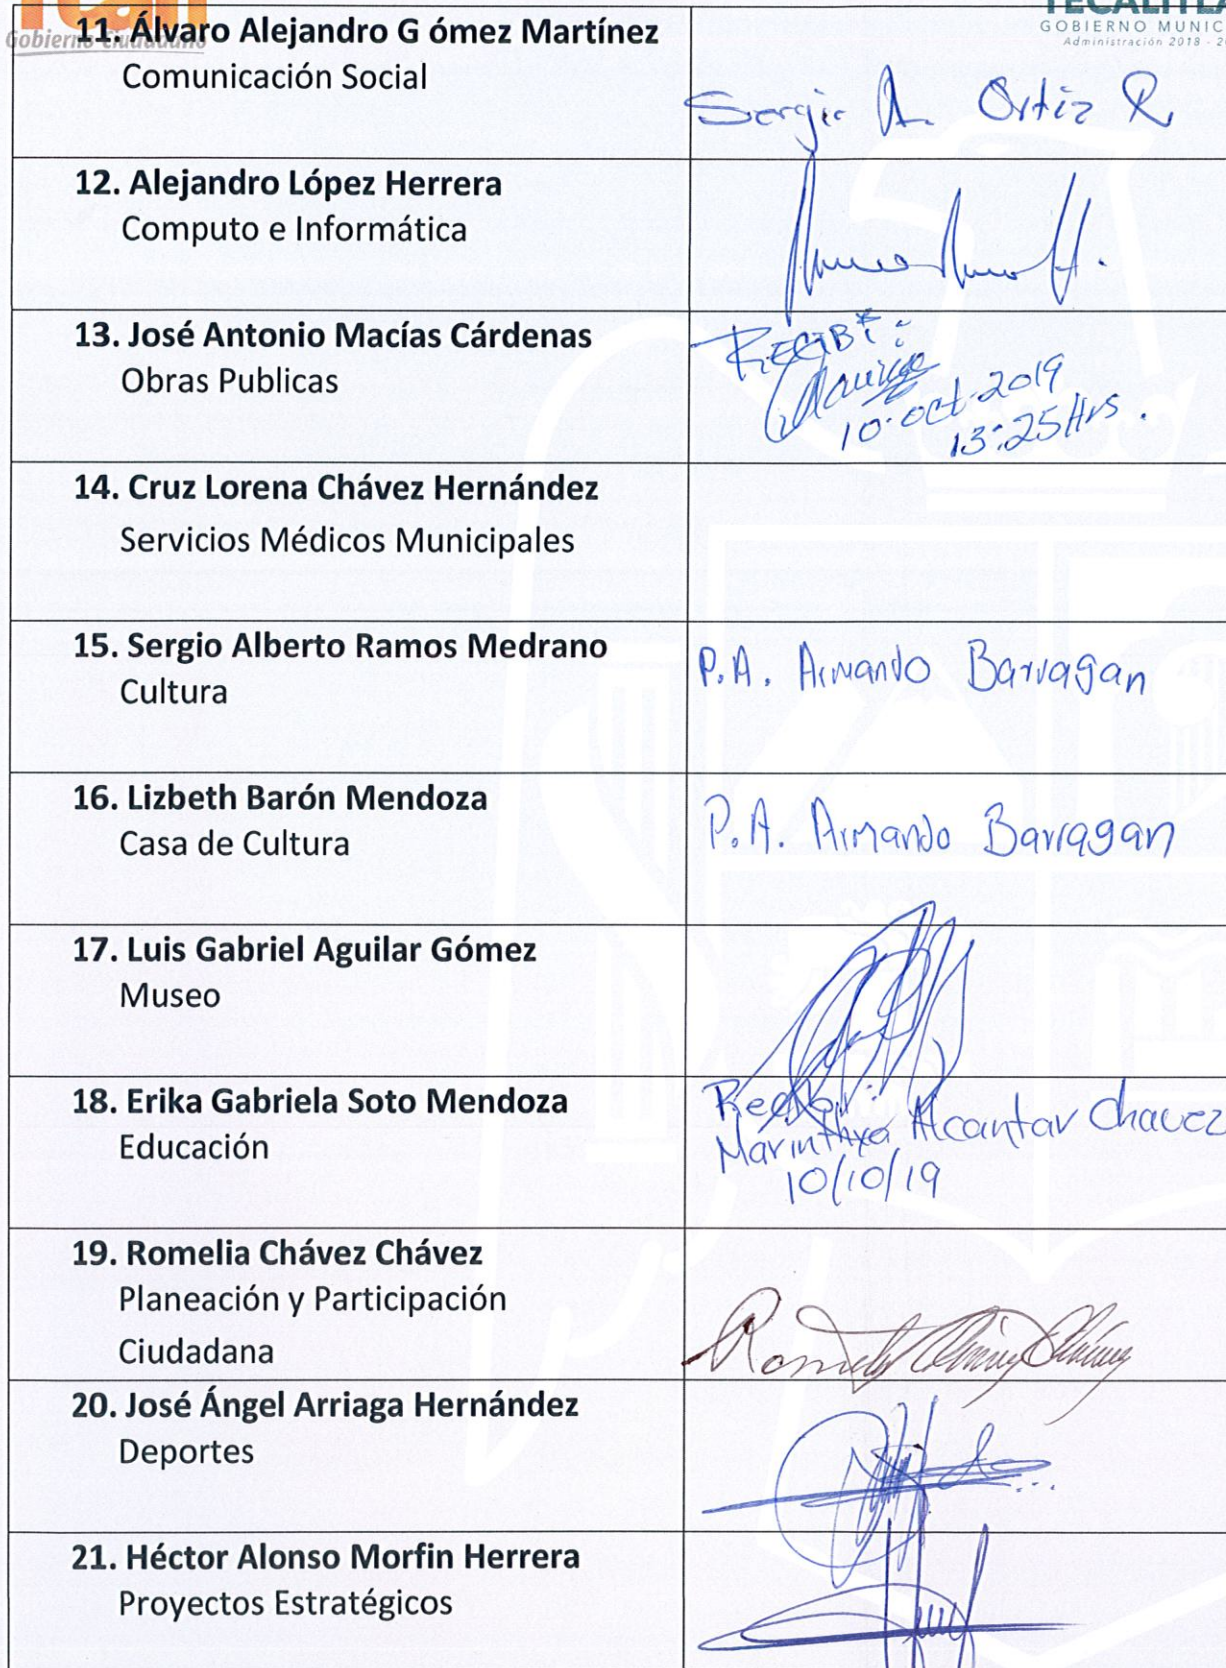 Gobierno Ciudadano
TECALITLÁ
GOBIERNO MUNICI
Administración 2018 - 20
11. Álvaro Alejandro G ómez Martínez
Comunicación Social
Sergio A. Ortiz R.
12. Alejandro López Herrera
Computo e Informática
13. José Antonio Macías Cárdenas
Obras Publicas
RECIBI:
10-oct-2019
13:25 Hrs.
14. Cruz Lorena Chávez Hernández
Servicios Médicos Municipales
15. Sergio Alberto Ramos Medrano
Cultura
P.A. Armando Barragan
16. Lizbeth Barón Mendoza
Casa de Cultura
P.A. Armando Barragan
17. Luis Gabriel Aguilar Gómez
Museo
18. Erika Gabriela Soto Mendoza
Educación
Recibi:
Marinthya Alcantar Chavez
10/10/19
19. Romelia Chávez Chávez
Planeación y Participación
Ciudadana
Romelia Chávez Chávez
20. José Ángel Arriaga Hernández
Deportes
21. Héctor Alonso Morfin Herrera
Proyectos Estratégicos